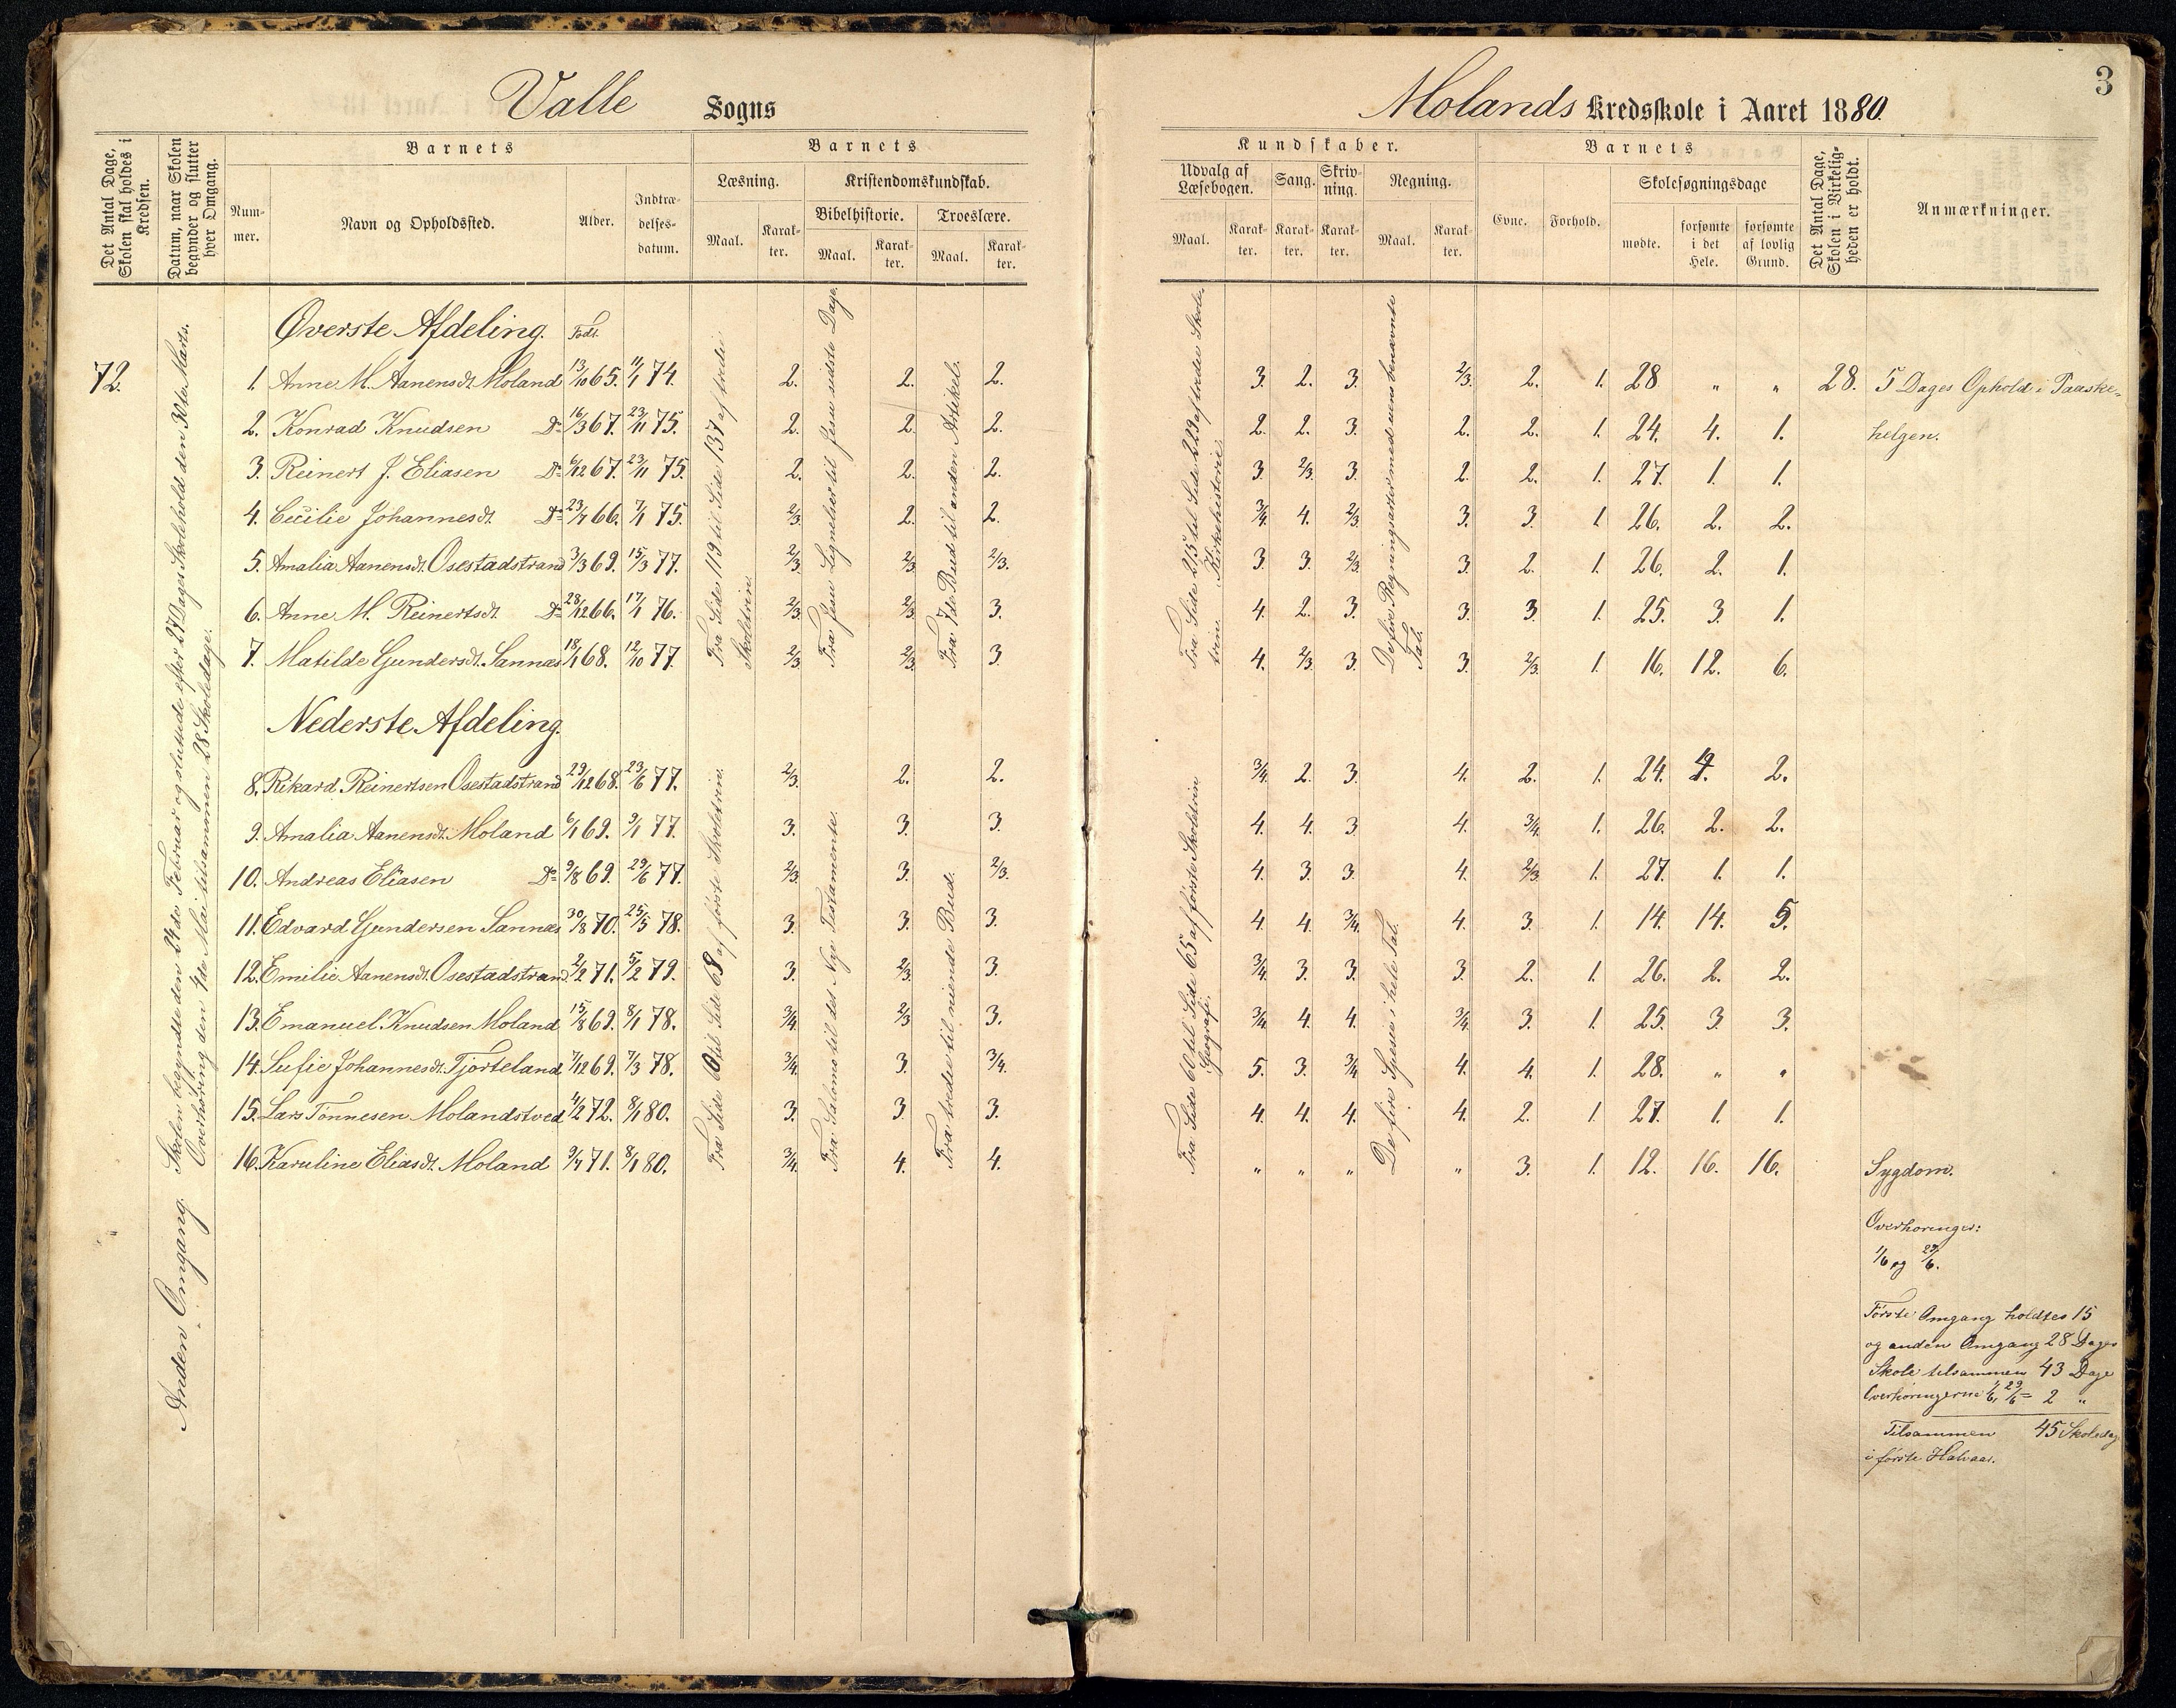 3
Valle Sogns
Molands Kredsskole i Aaret 1880.
Det Antal Dage, Skolen skal holdes i Kredsen.
Datum, naar Skolen begynder og slutter hver Omgang.
Barnets
Num-mer.
Navn og Opholdssted.
Alder.
Indtræ-delses-datum.
Barnets
Læsning.
Maal.
Karak-ter.
Kristendomskundskab.
Bibelhistorie.
Maal.
Karak-ter.
Troeslære.
Maal.
Karak-ter.
Kundskaber.
Udvalg af Læsebogen.
Maal.
Karak-ter.
Sang.
Karak-ter.
Skriv-ning.
Karak-ter.
Regning.
Maal.
Karak-ter.
Barnets
Evne.
Forhold.
Skolesøgningsdage
mødte.
forsømte i det Hele.
forsømte af lovlig Grund.
Det Antal Dage, Skolen i Virkelig-heden er holdt.
Anmærkninger.
Øverste Afdeling. Født.
72. 1. Anne M. Aanensdt. Moland 13/10 65. 11/1 74. 2. 2. 2. 3. 2. 3. 2/3. 2. 1. 28 " " 28. 5 Dages Ophold i Paaske-
2. Konrad Knudsen Do 16/3 67. 23/11 75. 2. 2. 2. 2. 2. 3. 2. 2. 1. 24. 4. 1. helgen.
3. Reinert J. Eliasen Do 6/12 67. 23/11 75. 2. 2. 2. 3. 2/3. 3. 2. 2. 1. 27. 1. 1.
4. Cecilie Johannesdt. Do 23/7 66. 7/1 75. 2/3. 2. 2. 3/4. 4. 2/3. 3. 3. 1. 26. 2. 2.
5. Amalia Aanensdt. Osestadstrand 3/3 69. 15/3 77. 2/3. 2/3. 2/3. 3. 3. 2/3. 3. 2. 1. 26. 2. 1.
6. Anne M. Reinertsdt. Do 28/12 66. 17/1 76. 2/3. 2/3. 3. 4. 2. 3. 3. 3. 1. 25. 3. 1.
7. Matilde Gundersdt. Sannæs 18/1 68. 12/10 77. 2/3. 2/3. 3. 4. 2/3. 3. 3. 2/3. 1. 16. 12. 6.
Nederste Afdeling.
8. Rikard Reinertsen Osestadstrand 29/12 68. 23/6 77. 2/3. 2. 2. 3/4. 2. 3. 4. 2. 1. 24. 4. 2.
9. Amalia Aanensdt. Moland 6/1 69. 9/1 77. 3. 3. 3. 4. 4. 3. 4. 3/4. 1. 26. 2. 2.
10. Andreas Eliasen Do 9/8 69. 29/6 77. 2/3. 3. 2/3. 4. 3. 3. 4. 2/3. 1. 27. 1. 1.
11. Edvard Gundersen Sannæs 30/8 70. 25/5 78. 3. 3. 3. 4. 4. 3/4. 4. 3. 1. 14. 14. 5.
12. Emilie Aanensdt. Osestadstrand 2/2 71. 5/2 79. 3. 2/3. 3. 3/4. 3. 3. 3. 2. 1. 26. 2. 2.
13. Emanuel Knudsen Moland 15/8 69. 8/1 78. 3/4. 2/3 3. 3/4. 4. 4. 3/4. 3. 1. 25. 3. 3.
14. Sufie Johannesdt. Tjorteland 7/12 69. 7/3 78. 3/4. 3. 3/4. 5. 3. 3/4 4. 4. 1. 28. " "
15. Lars Tönnesen Molandstved 4/2 72. 8/1 80. 3. 3 3. 4. 4. 4. 4. 2. 1. 27. 1. 1.
16. Karuline Eliasdt. Moland 9/7 71. 8/1 80. 3/4. 4. 4. " " " " 3. 1. 12. 16. 16. Sygdom.
Anden Omgang. Skolen begyndte den 24de Februar og sluttede efter 27 Dages Skolehold den 30te Marts.
Overhøring den 4de Mai tilsammen 28 Skoledage.
Fra Side 119 til Side 137 af tredie
Skoletrin.
Fra Jesu Lignelser til Jesu sidste Dage.
Fra 7de Bud til anden Artikel.
Fra Side 215 til Side 229 af tredie Skole-
trin. Kirkehistorie.
De fire Regningsarter med uens benævnte
Tal.
Fra Side 60 til Side 68 af første Skoletrin.
Fra Salomo til det Nye Testamente.
Fra tredie til niende Bud.
Fra Side 60 til Side 65 af første Skoletrin
Geografi.
De fire Spesies i hele Tal.
Overhøringer:
1/6 og 29/6.
Første Omgang holdtes 15
og anden Omgang 28 Dages
Skole tilsammen 43 Dage
Overhøringerne 1/6, 29/6 = 2 "
Tilsammen 45 Skoledag
i første Halvaar.